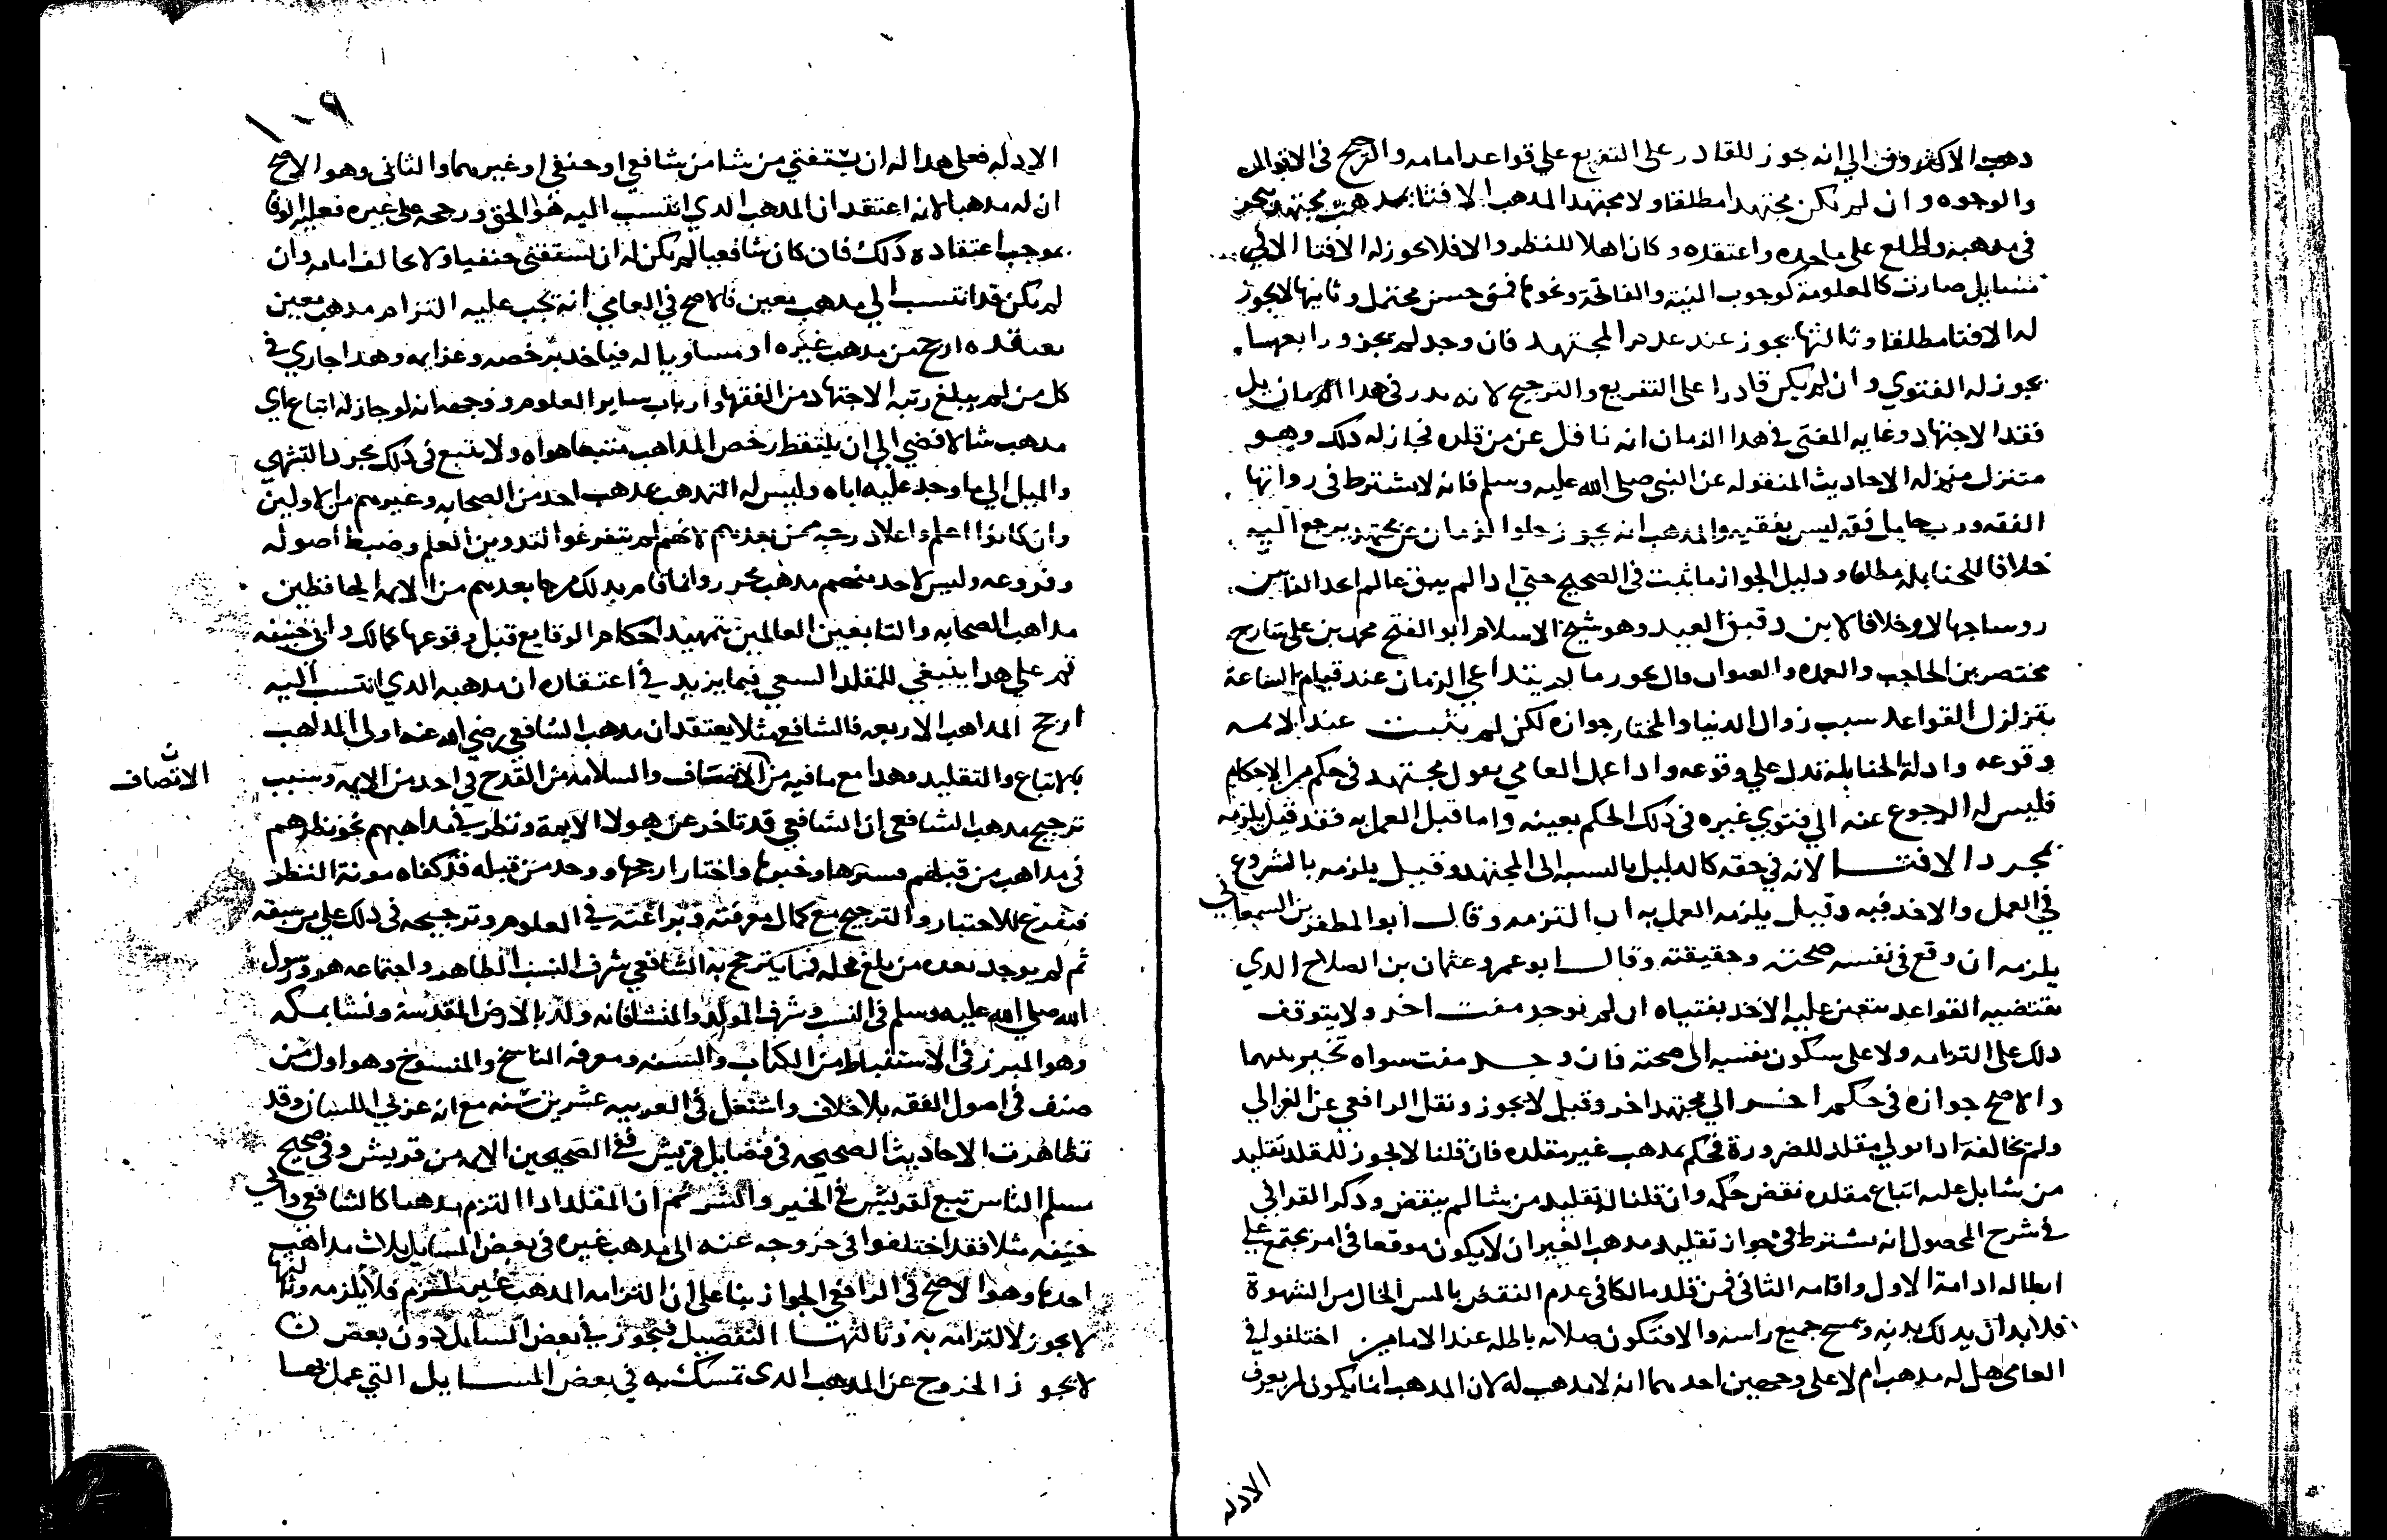 دهب الاكثرون الي انه يجوز للقادر على التفريع علي قواعد امامه والترجيح في الاقوال
والوجوه وان لم يكن مجتهدا مطلقا ولا مجتهد المدهب الافتا بمدهب مجتهد تبحر
في مدهبه واطلع على ماخده واعتقده وكان اهلا للنظر والا فلا يجوز له الافتا الا في
مسايل صارت كالمعلومة كوجوب النية والفاتحة ونحوها فشي حسن محتمل وثانيها لا يجوز
له الافتا مطلقا وثالثها يجوز عند عدم المجتهد فان وجد لم يجز ورابعها
يجوز له الفتوي وان لم يكن قادرا على التفريع والترجيح لانه ندر في هدا الزمان بل
فقد الاجتهاد وغايه المفتى في هدا الزمان انه ناقل عن من قلده فجاز له دلك وهو
متنزل منزله الاحاديث المنقوله عن النبي صلى الله عليه وسلم فانه لا يشترط في رواتها
الفقه ورب حامل فقه ليس بفقيه والمدهب انه يجوز خلوا الزمان عن مجتهد يرجع اليه
خلافا للحنابله مطلقا ودليل الجواز ما ثبت في الصحيح حتي ادا لم يبق عالم اتخد الناس
روسا جهالا وخلافا لابن دقيق العيد وهو شيخ الاسلام ابو الفتح محمد بن على شارح
مختصر بن الحاجب والعمده والعنوان قال يجوز ما لم يتداعي الزمان عند قيام الساعة
بتزلزل القواعد سبب زوال الدنيا والمختار جوازه لكن لم يثبت عند الايمه
وقوعه وادلة الحنابله تدل علي وقوعه وادا عمل العامي بقول مجتهد في حكم من الاحكام
فليس له الرجوع عنه الي فتوي غيره في ذلك الحكم بعينه واما قبل العمل به فقد قيل يلزمه
بمجرد الافتا لانه في حقه كالدليل بالنسبه الى المجتهد وقيل يلزمه بالشروع
في العمل والاخد فيه وقيل يلزمه العمل به ان التزمه وقال ابو المظفر بن السمعاني
يلزمه ان وقع في نفسه صحته وحقيقته وقال ابو عمرو عثمان بن الصلاح الدي
تقتضيه القواعد يتعين عليه الاخد بفتياه ان لم يوجد مفت اخر ولا يتوقف
دلك على التزامه ولا على سكون نفسه الى صحته فان وجد مفت سواه تخير بينهما
والاصح جوازه في حكم اخر الي مجتهد اخر وقيل لا يجوز ونقل الرافعي عن الغزالي
ولم يخالفه ادا ولي مقلد للضرورة فحكم بمدهب غير مقلده فان قلنا لا يجوز للمقلد تقليد
من شا بل عليه اتباع مقلده نقض حكمه وان قلنا له تقليد من شا لم ينقض ودكر القرافي
في شرح المحصول انه يشترط في جواز تقليد مدهب الغير ان لا يكون موقعا في امر يجتمع على
ابطاله امامه الاول وامامه الثاني فمن قلد مالكا في عدم النقض باللمس الخالي من الشهوة
فلا بد ان يدلك بدنه ويمسح جميع راسه والا فتكون صلاته باطله عند الامامين اختلفوا في
العامي هل له مدهب ام لا على وجهين احدهما انه لا مدهب له لان المدهب انما يكون لمن يعرف
الادله
١٠٩
الادله فعلى هدا له ان يستفتي من شا من شافعي او حنفي او غيرهما والثاني وهو الاصح
ان له مدهبا لانه اعتقد ان المدهب الدي انتسب اليه هو الحق ورجحه على غيره فعليه الوفا
بموجب اعتقاده ذلك فان كان شافعيا لم يكن له ان يستفتي حنفيا ولا يخالف امامه وان
لم يكن قد انتسب الي مدهب معين فالاصح في العامي انه يجب عليه التزام مدهب معين
يعتقده ارجح من مدهب غيره او مساويا له فياخد برخصه وعزايمه وهدا جاري في
كل من لم يبلغ رتبه الاجتهاد من الفقها وارباب ساير العلوم ووجهه انه لو جاز له اتباع اي
مدهب شا لافضي الي ان يلتقط رخص المداهب متبعا هواه ولا يتبع في ذلك مجرد التشهي
والميل الي ما وجد عليه اباه وليس له التمدهب بمدهب احد من الصحابه وغيرهم من الاولين
وان كانوا اعلم واعلا درجه ممن بعدهم لانهم لم يتفرغوا لتدوين العلم وضبط اصوله
وفروعه وليس لاحد منهم مدهب محرر وانما قام بدلك من جا بعدهم من الايمه الحافظين
مداهب الصحابه والتابعين العالمين بتمهيد احكام الوقايع قبل وقوعها كمالك وابي حنيفه
ثم على هدا ينبغي للمقلد السعي فيما يزيد في اعتقاده ان مدهبه الدي انتسب اليه
ارجح المداهب الاربعه فالشافعي مثلا يعتقد ان مدهب الشافعي رضي الله عنه اولى المداهب
بالاتباع والتقليد وهدا مع ما فيه من الانصاف والسلامه من القدح في احد من الايمه وسبب
ن الانصاف
ترجيح مدهب الشافعي ان الشافعي قد تاخر عن هولا الايمة ونظر في مداهبهم نحو نظرهم
في مداهب من قبلهم فسبرها وخبرها واختار ارجحها ووجد من قبله قد كفاه مونة النظر
فتفرغ للاختيار والترجيح مع كمال معرفته وبراعته في العلوم وترجيحه في ذلك على من سبقه
ثم لم يوجد بعده من بلغ محله فيما يترجح به الشافعي شرف النسب الطاهر واجتماعه هو ورسول
الله صلي الله عليه وسلم في النسب وشرف المولد والمنشا فانه ولد بالارض المقدسة ونشا بمكه
وهو المبرز في الاستنباط من الكتاب والسنه ومعرفه الناسخ والمنسوخ وهو اول من
صنف في اصول الفقه بلا خلاف واشتغل في العربيه عشرين سنه مع انه عربي اللسان وقد
تظاهرت الاحاديث الصحيحه في فضايل قريش ففي الصحيحين الايمه من قريش وفي صحيح
مسلم الناس تبع لقريش في الخير والشر ثم ان المقلد ادا التزم مدهبا كالشافعي وابي
حنيفه مثلا فقد اختلفوا في خروجه عنه الى مدهب غيره في بعض المسايل بلاث مداهب
احدها وهو الاصح في الرافعي الجواز بنا على ان التزامه المدهب غير ملتزم فلا يلزمه وثانيها
لا يجوز لالتزامه به وثالثها التفصيل فيجوز في بعض المسايل دون بعض
لا يجوز الخروج عن المدهب الدي تمسك به في بعض المسايل التي عمل بها